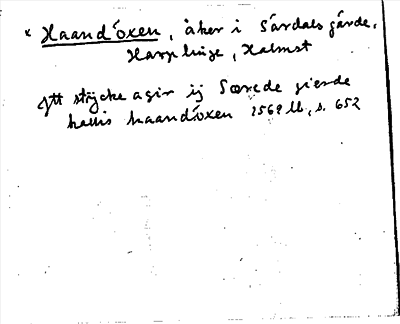 × Haandöxen, åker i Särdals gärde,
Harplinge, Halmst
Itt stycke agir ij Særede gierde
kallis haandöxen 1569 lb, s. 652